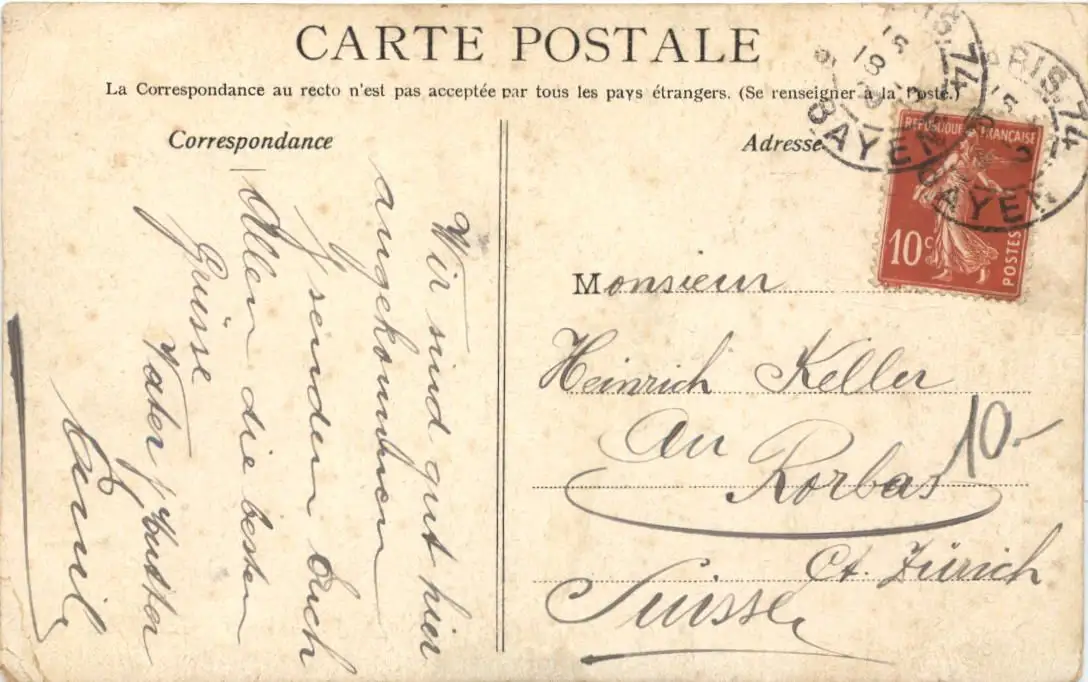 CARTE POSTALE
La Correspondance au recto n'est pas acceptée par tous les pays étrangers. (Se renseigner à la Poste.)
Correspondance
Wir sind gut hier
angekommen
senden Euch
Allen die besten
Grüsse
Vater, Mutter
Emil
Adresse
PARIS. 74
BAYEN
RÉPUBLIQUE FRANÇAISE
10c
POSTES
Monsieur
Heinrich Keller
An Rorbas
Ct. Zürich
Suisse
10.-